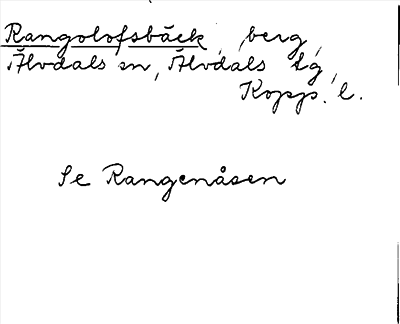 Rangolofsbäck, berg,
Älvdals sn, Älvdals tg,
Kopp. l.
Se Rangenåsen